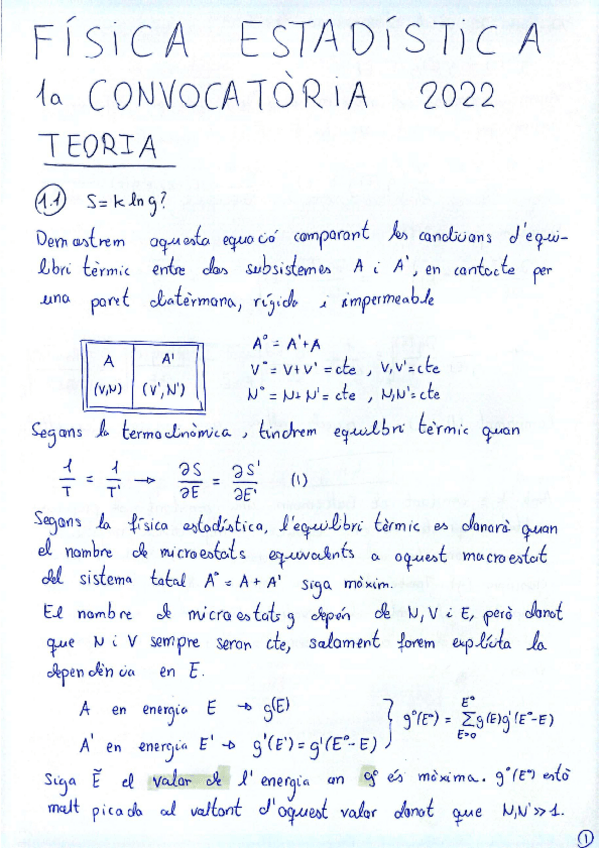 FÍSICA ESTADÍSTICA
1a CONVOCATÒRIA 2022
TEORIA
1.1 S=k ln g?
Demostrem aquesta equació comparant les condicions d'equi-
libri tèrmic entre dos subsistemes A i A', en contacte per
una paret diatèrmana, rígida i impermeable
A A'
(V,N) (V',N')
A° = A'+A
V° = V+V' = cte , V,V'=cte
N° = N+N' = cte , N,N'=cte
Segons la termodinàmica, tindrem equilibri tèrmic quan
1/T = 1/T' → ∂S/∂E = ∂S'/∂E' (1)
Segons la física estadística, l'equilibri tèrmic es donarà quan
el nombre de microestats equivalents a aquest macroestat
del sistema total A° = A + A' siga màxim.
El nombre de microestats g depén de N, V i E, però donat
que N i V sempre seran cte, solament farem explícita la
dependència en E.
A en energia E → g(E)
A' en energia E' → g'(E') = g'(E°-E)
} g°(E°) = Σ g(E)g'(E°-E)
E°
E>0
Siga Ẽ el valor de l'energia on g° és màxima. g°(E°) està
molt picada al voltant d'aquest valor donat que N,N'>>1.
1